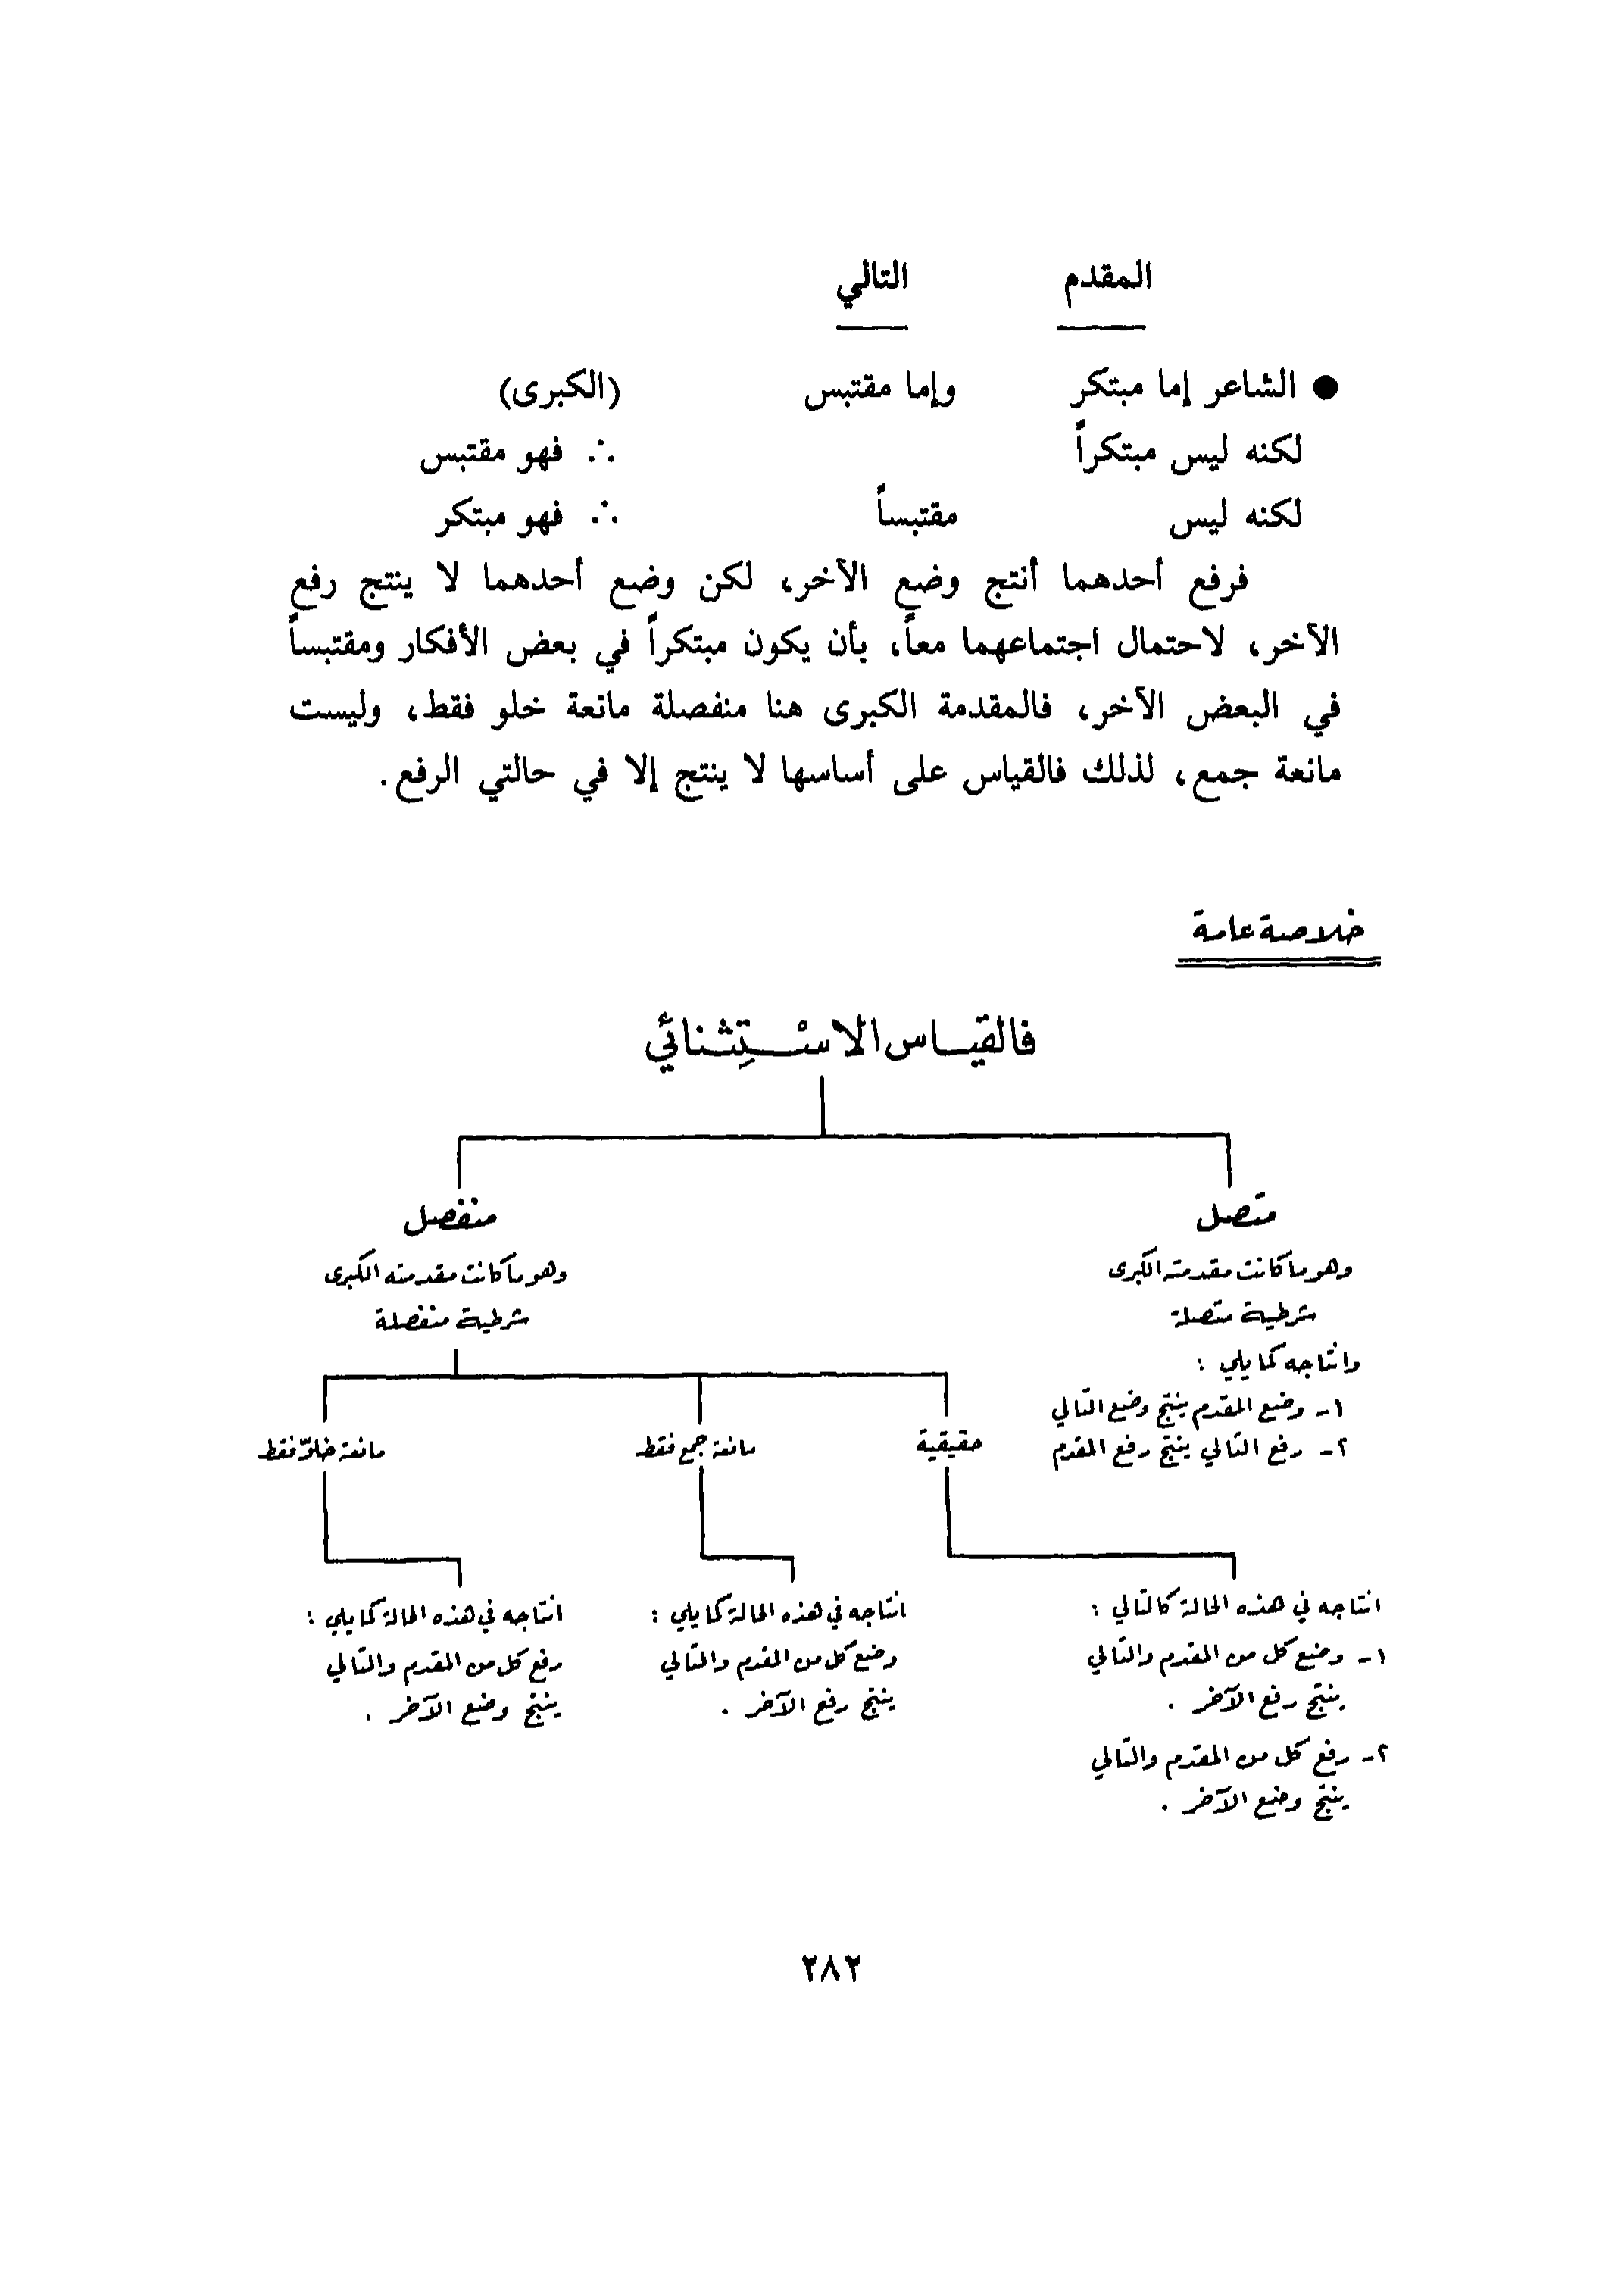 المقدم التالي
● الشاعر إما مبتكر وإما مقتبس (الكبرى)
لكنه ليس مبتكراً ∴ فهو مقتبس
لكنه ليس مقتبساً ∴ فهو مبتكر
فرفع أحدهما أنتج وضع الآخر، لكن وضع أحدهما لا ينتج رفع
الآخر، لاحتمال اجتماعهما معاً، بأن يكون مبتكراً في بعض الأفكار ومقتبساً
في البعض الآخر، فالمقدمة الكبرى هنا منفصلة مانعة خلو فقط، وليست
مانعة جمع، لذلك فالقياس على أساسها لا ينتج إلا في حالتي الرفع.
خلاصة عامة
فالقياس الاسْتِثنائي
متصل
وهو ما كانت مقدمته الكبرى
شرطية متصلة
وانتاجه كما يلي :
١ـ وضع المقدم ينتج وضع التالي
٢ـ رفع التالي ينتج رفع المقدم
منفصل
وهو ما كانت مقدمته الكبرى
شرطية منفصلة
حقيقية
مانعة جمع فقط
مانعة خلوّ فقط
انتاجه في هذه الحالة كالتالي :
١ـ وضع كل من المقدم والتالي
ينتج رفع الآخر .
٢ـ رفع كل من المقدم والتالي
ينتج وضع الآخر .
انتاجه في هذه الحالة كما يلي :
وضع كل من المقدم والتالي
ينتج رفع الآخر .
انتاجه في هذه الحالة كما يلي :
رفع كل من المقدم والتالي
ينتج وضع الآخر .
٢٨٢